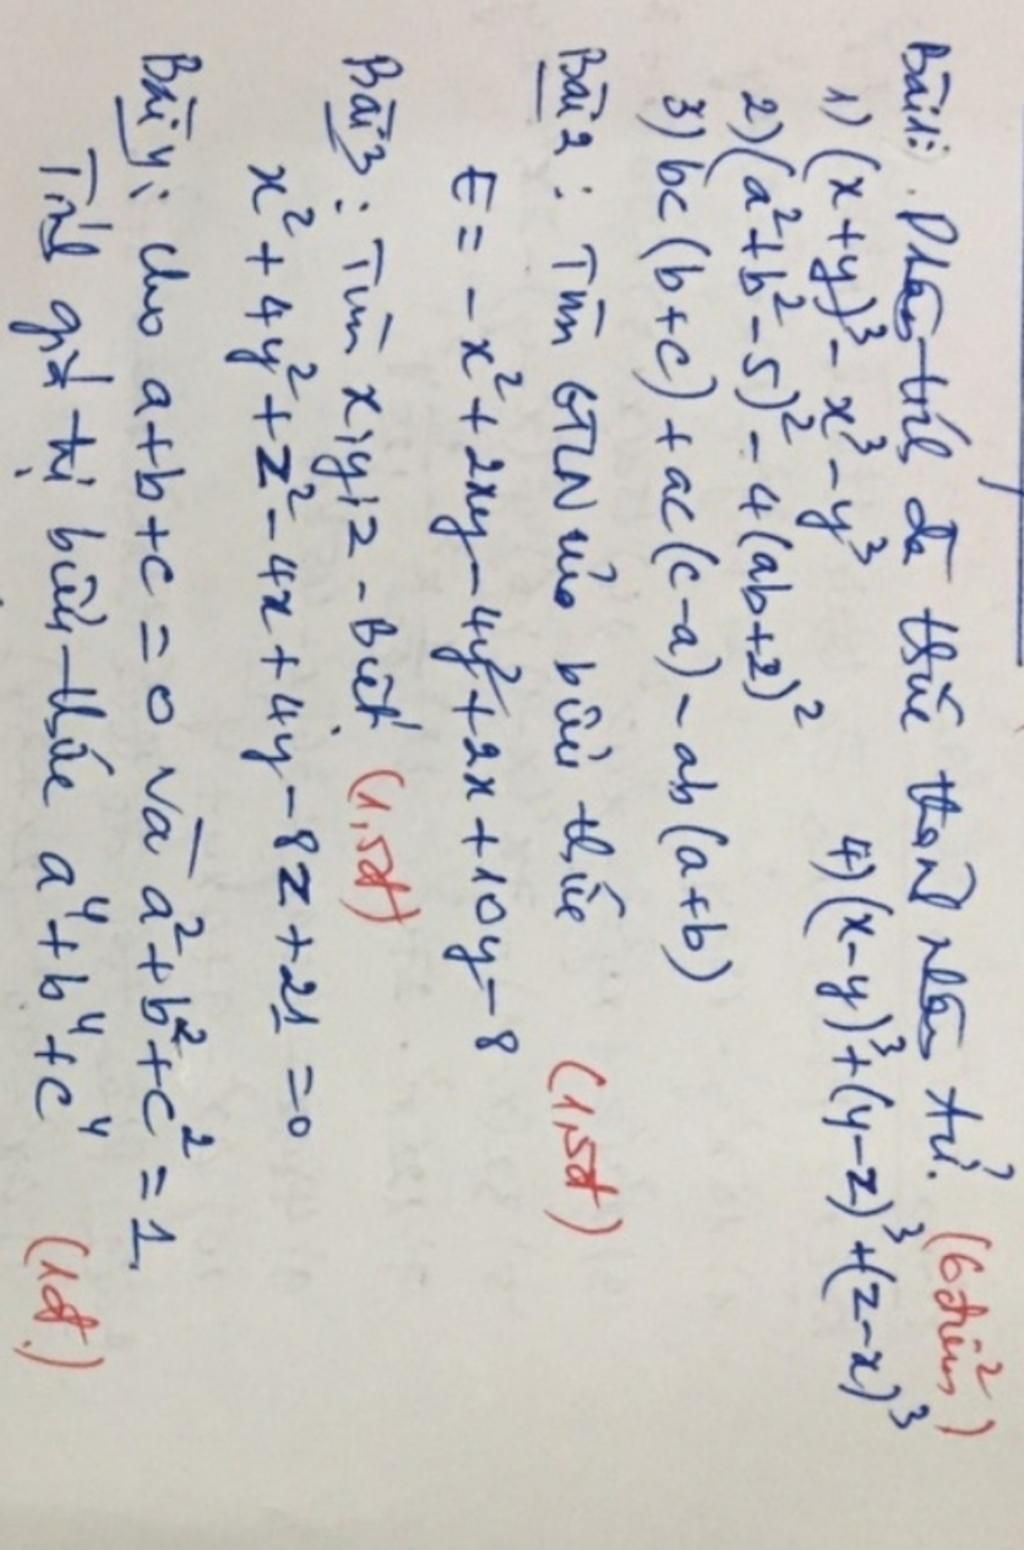 Bài 1: Phân tích đa thức thành nhân tử. (6 điểm)
1) (x+y)³ - x³ - y³ 4) (x-y)³+(y-z)³+(z-x)³
2) (a²+b²-5)² - 4(ab+2)²
3) bc(b+c) + ac(c-a) - ab(a+b)
Bài 2: Tìm GTLN của biểu thức (1,5đ)
E = -x² + 2xy - 4y² + 2x + 10y - 8
Bài 3: Tìm x; y; z - Biết (1,5đ)
x² + 4y² + z² - 4x + 4y - 8z + 21 = 0
Bài 4: cho a+b+c = 0 và a²+b²+c² = 1.
Tính giá trị biểu thức a⁴+b⁴+c⁴ (1đ.)